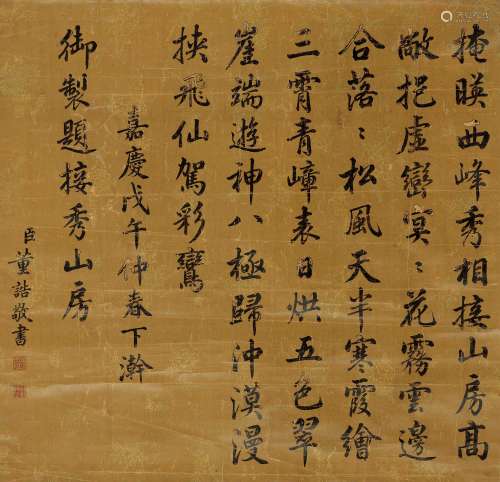 掩暎西峰秀相接山房高
敞挹虛巒寞〻花霧雲邊
合落〻松風天半寒霞繪
三霄青嶂表日烘五色翠
崖端遊神八極歸沖漠漫
挾飛仙駕彩鸞
嘉慶戊午仲春下澣
御製題接秀山房
臣董誥敬書